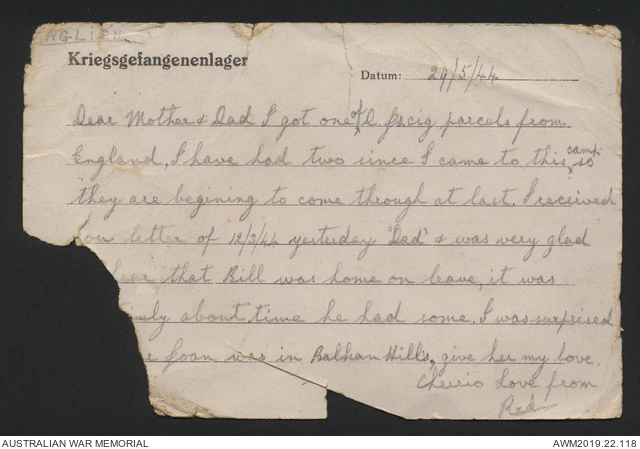 NGLISH
Kriegsgefangenenlager
Datum: 29/5/44
Dear Mother & Dad I got one of D. Js cig parcels from
England, I have had two since I came to this camp so
they are begining to come through at last. I received
letter of 12/3/44 yesterday "Dad" & was very glad
that Bill was home on leave, it was
about time he had some. I was surprised
Joan was in Balkan Hills, give her my love.
Cheerio Love from
Red
AUSTRALIAN WAR MEMORIAL
AWM2019.22.118